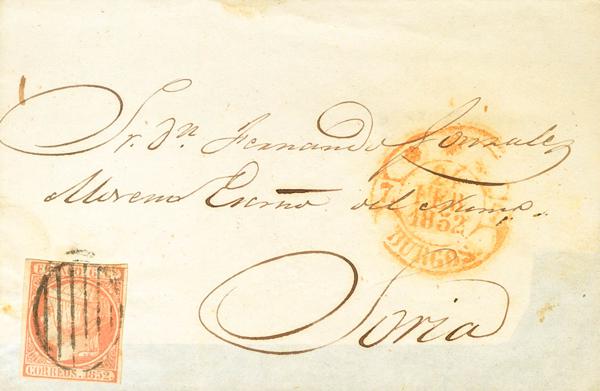 Sr. Dn. Fernando Gonzalez
Moreno Escno del Numo.
Soria
1852
BURGOS
CORREOS. 1852.